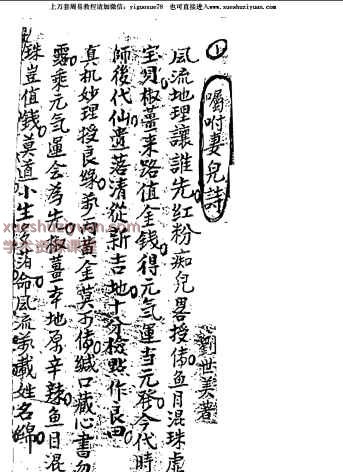 上万套周易教程请加微信：yiguoxue78　也可直接进入www.xunshuziyuan.com
上
囑咐妻兒詩
劉世美著
風流地理讓誰先紅粉痴兒畧授傳魚目混珠虛
宝贝椒薑来路值金钱得元气運当元發今代時
師後代仙遗落清從新吉地十分檢點作良田
真机妙理授良緣 黄金莫乱傳緘口藏心書勿
露乘元气運会為先椒薑辛地原辛辣魚目混
珠岂值錢莫道小生 命風流 藏姓名綿
xunshuziyuan.com